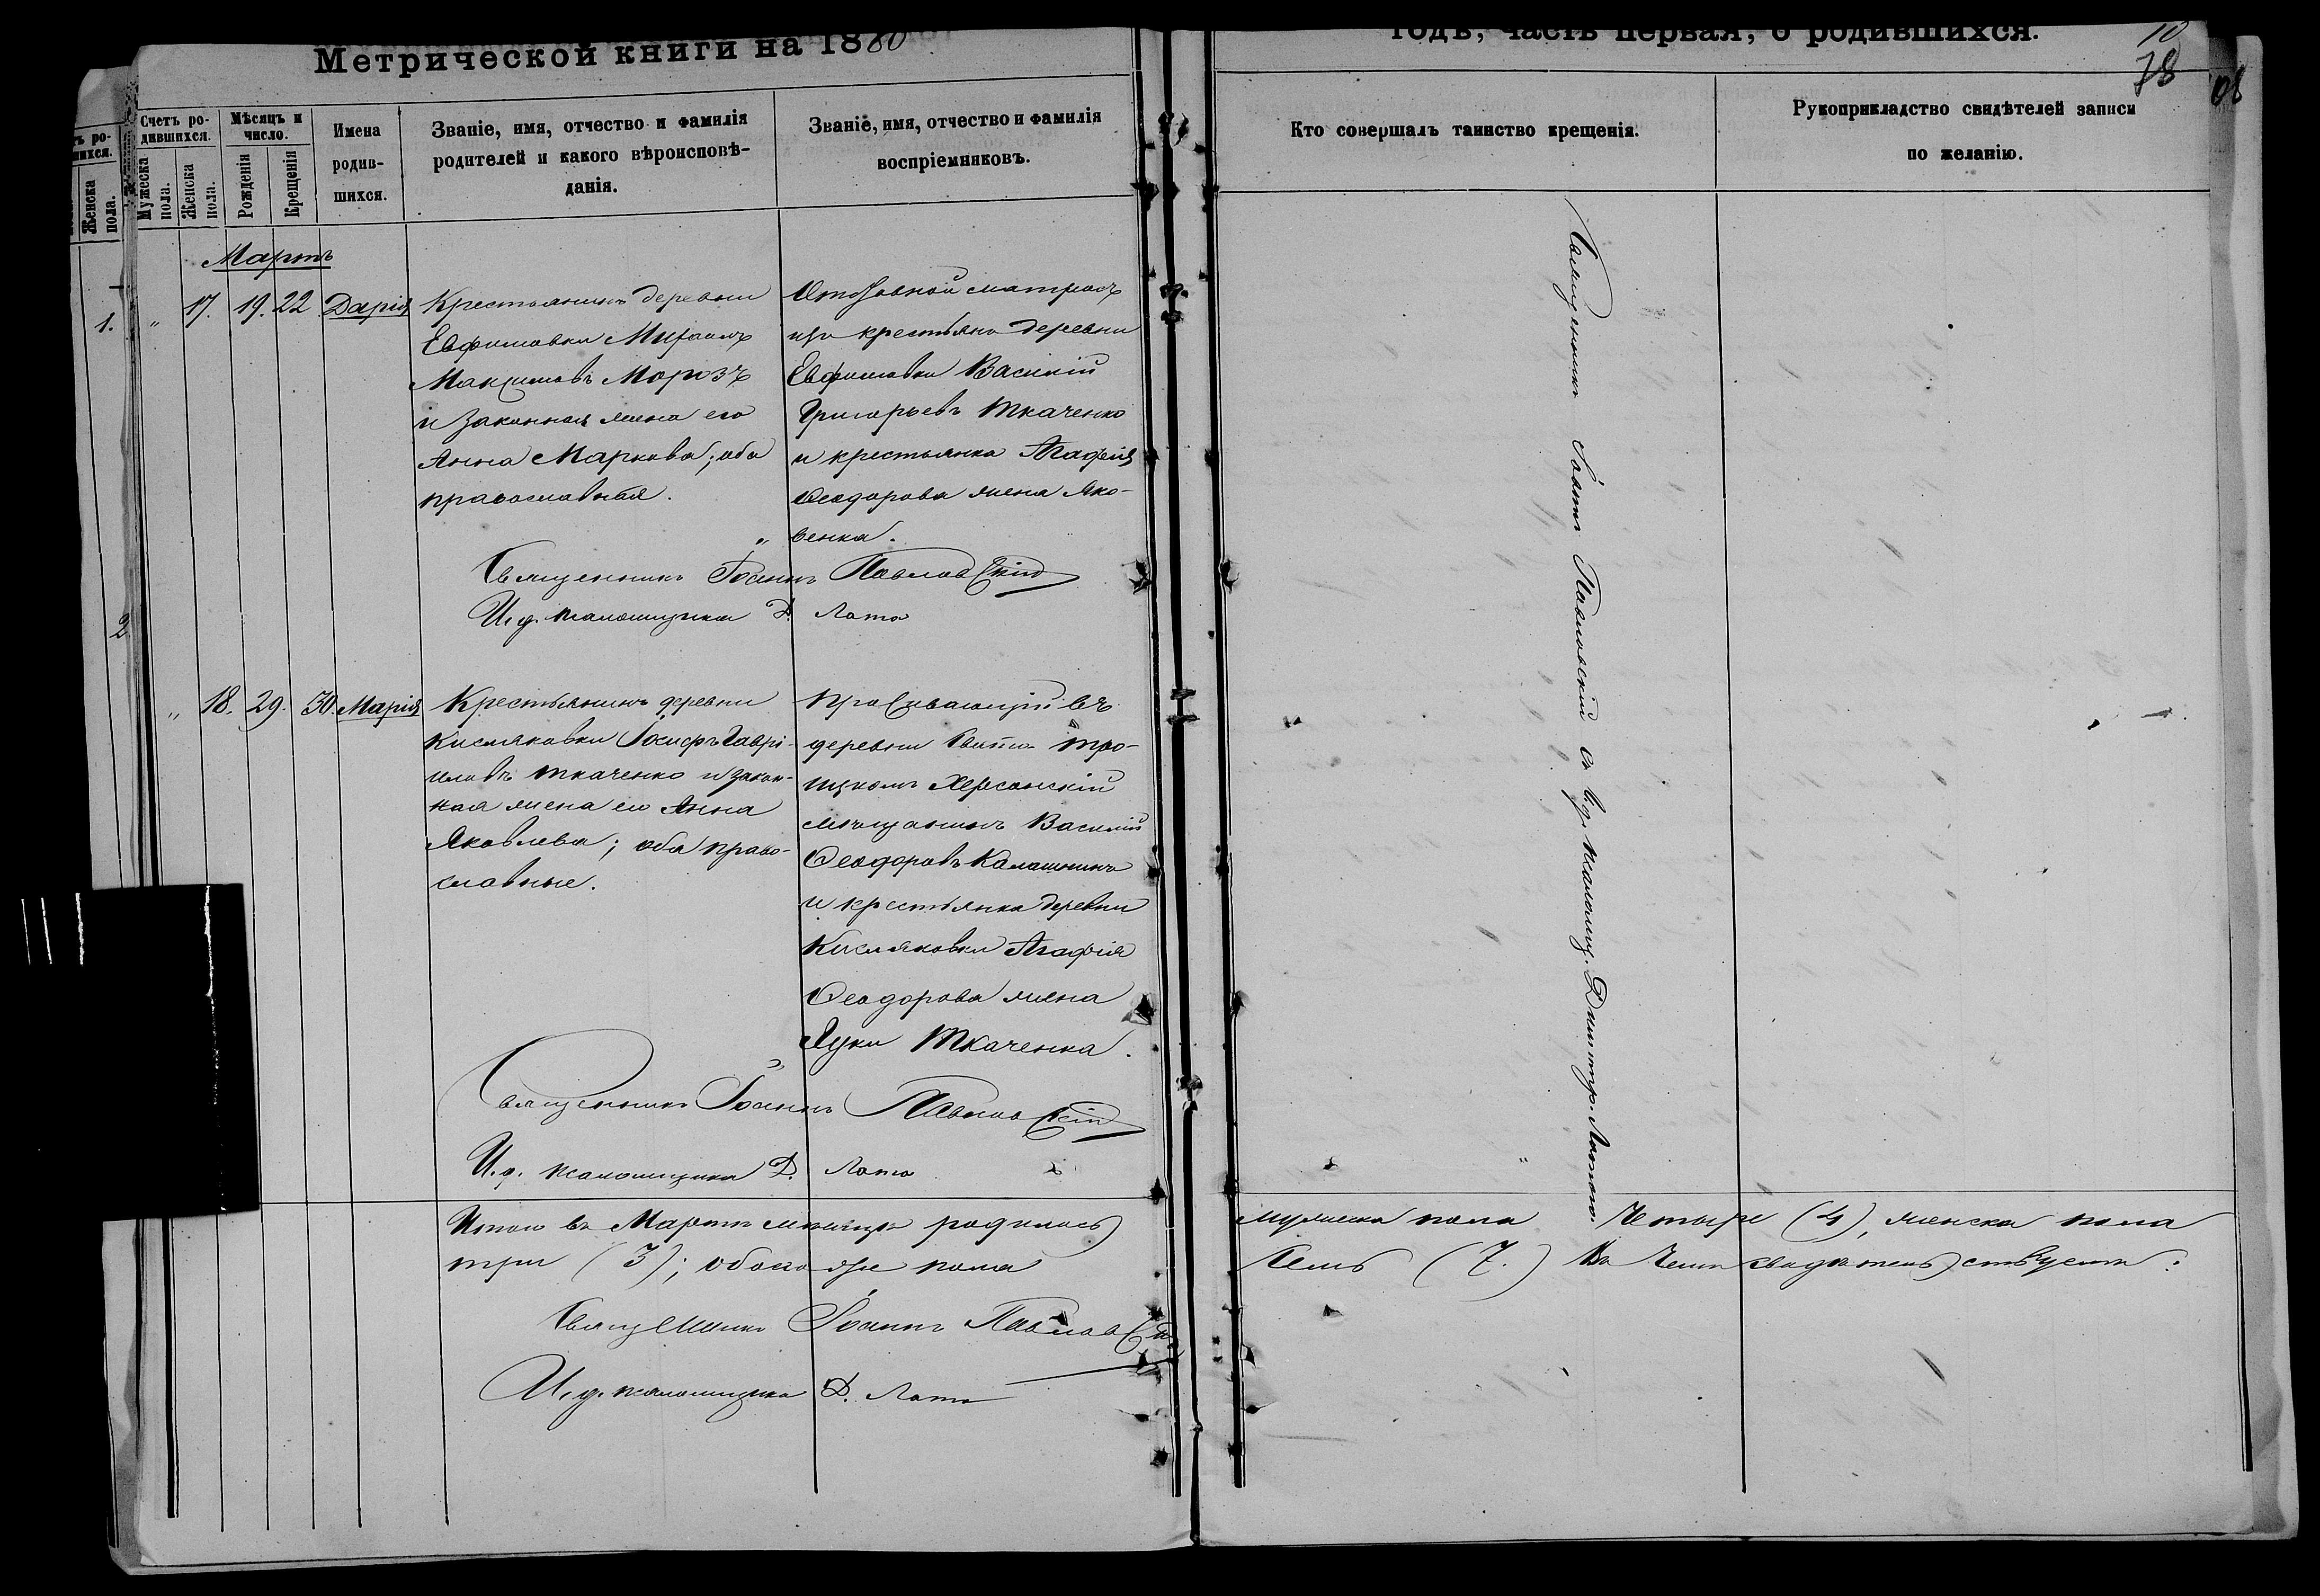 Метрической книги на 1880
годъ, часть первая, о родившихся.
10
78
Счетъ ро-
дившихся.
Мужеска
пола.
Женска
пола.
Мѣсяцъ и
число.
Рожденія
Крещенія
Имена
родив-
шихся.
Званіе, имя, отчество и фамилія
родителей и какого вѣроисповѣ-
данія.
Званіе, имя, отчество и фамилія
воспріемниковъ.
Кто совершалъ таинство крещенія.
Рукоприкладство свидѣтелей записи
по желанію.
Женска
пола.
1.
2.
Мартъ
" 17. 19. 22 Дарія
Крестьянинъ деревни
Евфимовки Михаилъ
Максимовъ Морозъ
и законная жена его
Анна Маркова; оба
православныя.
Отставной матросъ
изъ крестьянъ деревни
Евфимовки Василій
Григорьевъ Ткаченко
и крестьянка Агафія
Феодорова жена Яко-
венка.
Священникъ Іоаннъ Павловскій
И.д. псаломщика Д. Лото
" 18. 29. 30. Марія
Крестьянинъ деревни
Кисляковки Іосифъ Гаврі-
иловъ Ткаченко и закон-
ная жена его Анна
Яковлева; оба право-
славные.
Проживающій въ
деревни Свято-Тро-
ицкомъ Херсонскій
мѣщанинъ Василій
Феодоровъ Калашникъ
и крестьянка деревни
Кисляковки Агафія
Феодорова жена
Луки Ткаченка.
Священникъ Іоаннъ Павловскій
И.д. псаломщика Д. Лото
Священникъ Іоаннъ Павловскій съ И.д. псаломщ. Димитр. Лотто.
Итого въ Мартѣ мѣсяцѣ родилось мужеска пола Четыре (4), женска пола
три (3); обоего же пола Семь (7.) Въ чемъ свидѣтельствуемъ:
Священникъ Іоаннъ Павловскій
И.д. псаломщика Д. Лото